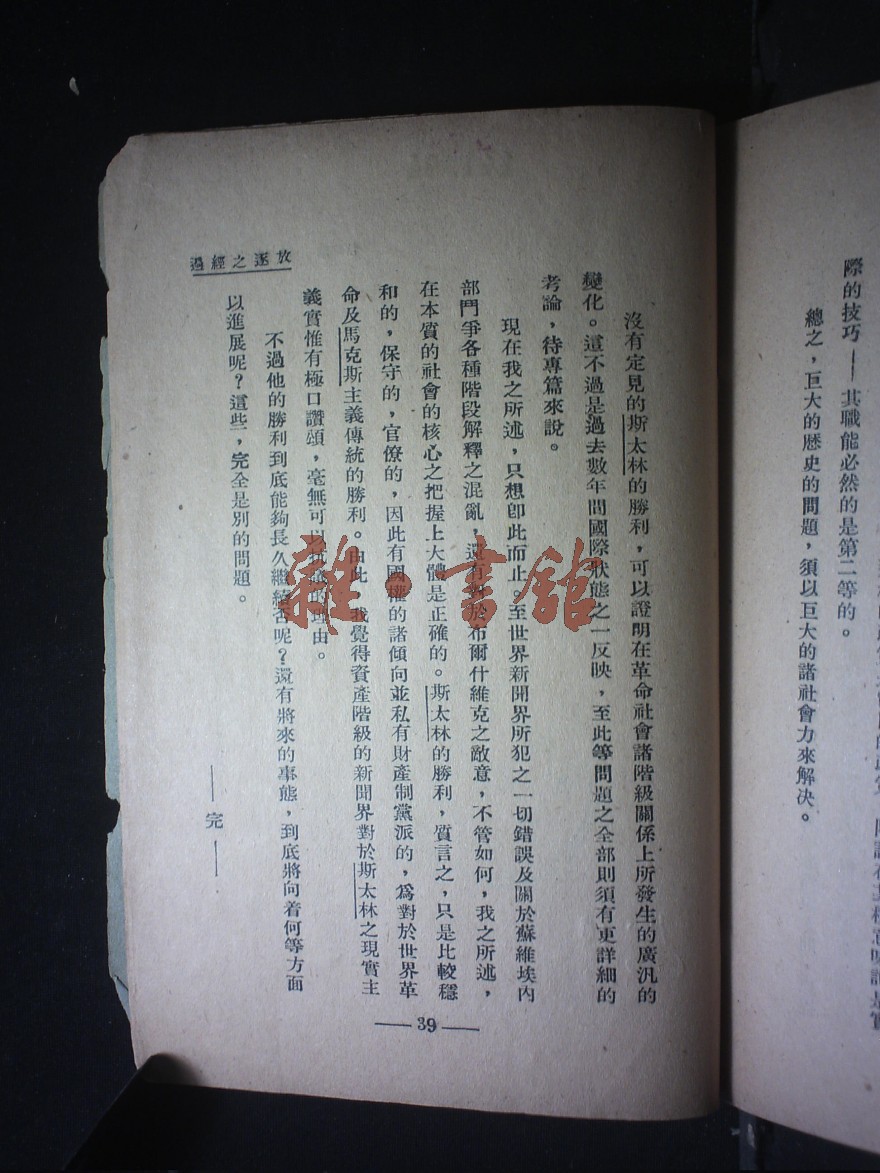 際的技巧——其職能必然的是第二等的。
總之，巨大的歷史的問題，須以巨大的諸社會力來解決。
沒有定見的斯太林的勝利，可以證明在革命社會諸階級關係上所發生的廣汎的
變化。這不過是過去數年間國際狀態之一反映，至此等問題之全部則須有更詳細的
考論，待專篇來說。
現在我之所述，只想卽此而止。至世界新聞界所犯之一切錯誤及關於蘇維埃內
部鬥爭各種階段解釋之混亂，還有對於布爾什維克之敵意，不管如何，我之所述，
在本質的社會的核心之把握上大體是正確的。斯太林的勝利，質言之，只是比較穩
和的，保守的，官僚的，因此有國權的諸傾向並私有財產制黨派的，爲對於世界革
命及馬克斯主義傳統的勝利。由此，我覺得資產階級的新聞界對於斯太林之現實主
義實惟有極口讚頌，毫無可以的理由。
不過他的勝利到底能夠長久繼續否呢？還有將來的事態，到底將向着何等方面
以進展呢？這些，完全是別的問題。
——完——
放逐之經過
—39—
雜·書舘